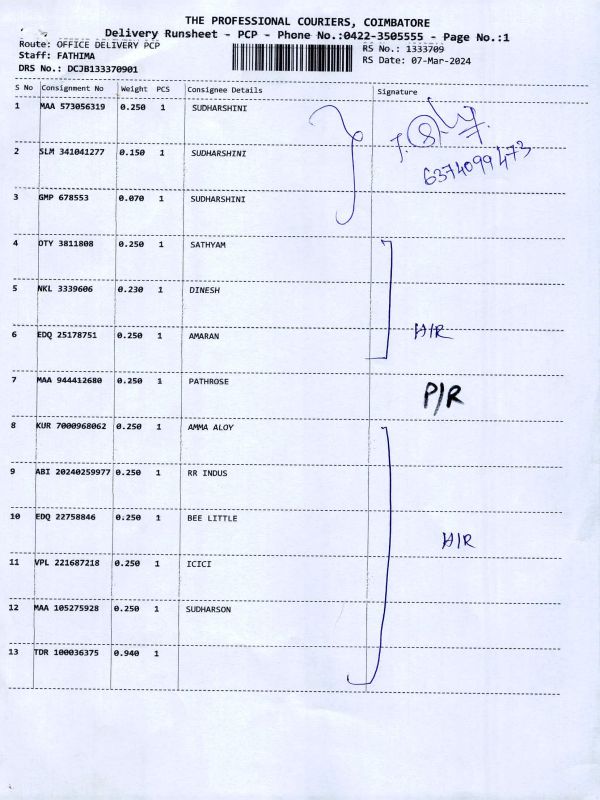 THE PROFESSIONAL COURIERS, COIMBATORE
Delivery Runsheet - PCP - Phone No.:0422-3505555 - Page No.:1
Route: OFFICE DELIVERY PCP
Staff: FATHIMA
DRS No.: DCJB133370901
RS No.: 1333709
RS Date: 07-Mar-2024
S No Consignment No Weight PCS Consignee Details Signature
1 MAA 573056319 0.250 1 SUDHARSHINI
2 SLM 341041277 0.150 1 SUDHARSHINI
6374099473
3 GMP 678553 0.070 1 SUDHARSHINI
4 OTY 3811808 0.250 1 SATHYAM
5 NKL 3339606 0.230 1 DINESH
6 EDQ 25178751 0.250 1 AMARAN H/R
7 MAA 944412680 0.250 1 PATHROSE P/R
8 KUR 7000968062 0.250 1 AMMA ALOY
9 ABI 20240259977 0.250 1 RR INDUS
10 EDQ 22758846 0.250 1 BEE LITTLE H/R
11 VPL 221687218 0.250 1 ICICI
12 MAA 105275928 0.250 1 SUDHARSON
13 TDR 100036375 0.940 1